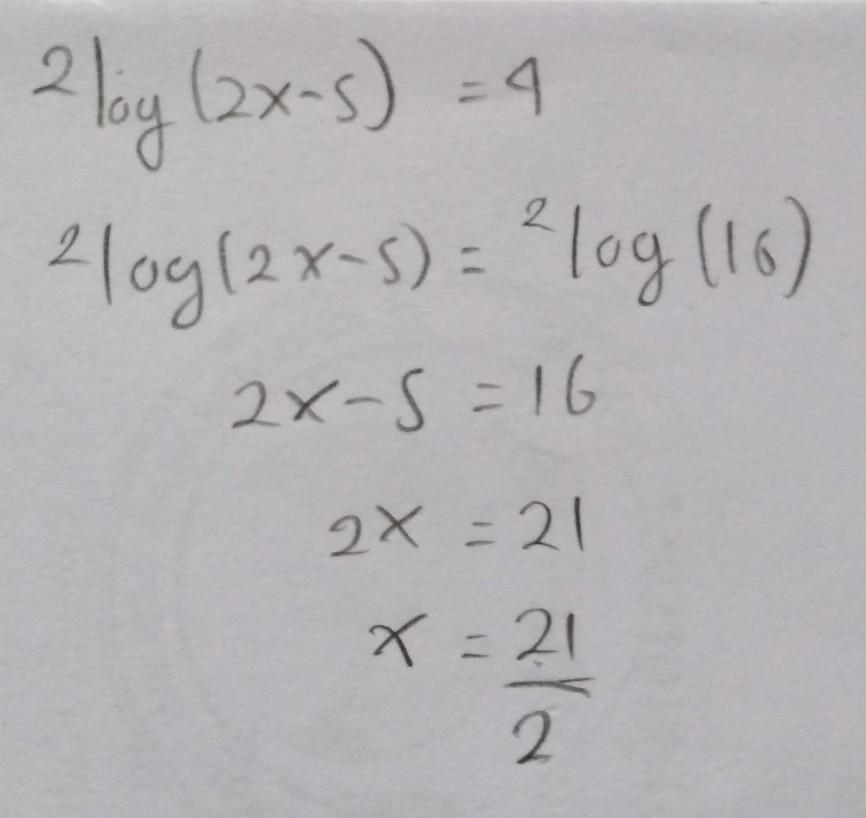 ²log(2x-5) = 4
²log(2x-5) = ²log(16)
2x-5 = 16
2x = 21
x = 21/2